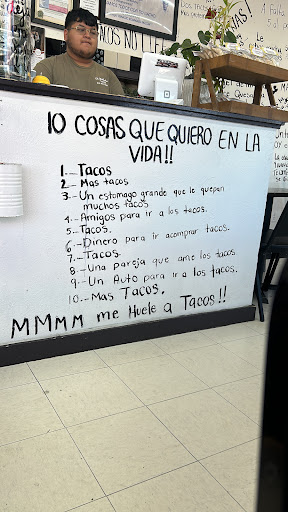 NOS NOT LIFE
10 COSAS QUE QUIERO EN LA
VIDA!!
1.- Tacos
2.- Mas tacos
3.- Un estomago grande que le quepan
muchos tacos
4.- Amigos para ir a los tacos.
5.- Tacos.
6.- Dinero para ir acomprar tacos.
7.- Tacos.
8.- Una pareja que ame los tacos.
9.- Un Auto para ir a los tacos.
10.- Mas Tacos.
MMMM me Huele a Tacos!!